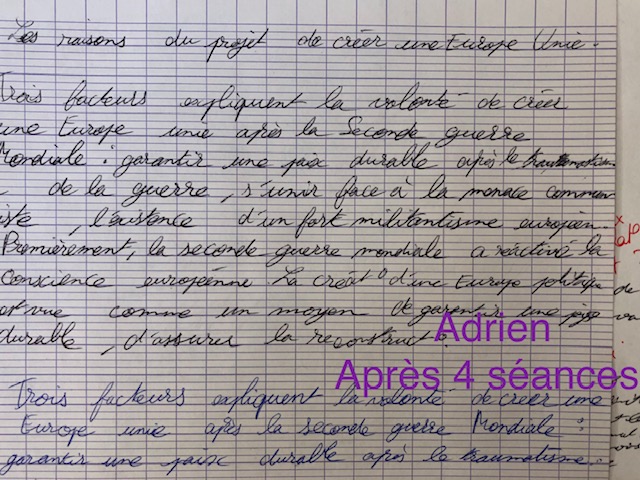 Les raisons du projet de créer une Europe Unie.
Trois facteurs expliquent la volonté de créer
une Europe unie après la Seconde guerre
Mondiale : garantir une paix durable après le traumatisme
de la guerre, s'unir face à la menace commun
iste, l'existence d'un fort militantisme européen.
Premièrement, la seconde guerre mondiale a réactivé la
conscience européenne. La créat° d'une Europe politique
est vue comme un moyen de garantir une paix
durable, d'assurer la reconstruct°.
Adrien
Après 4 séances
Trois facteurs expliquent la volonté de créer une
Europe unie après la seconde guerre Mondiale :
garantir une paix durable après le traumatisme.